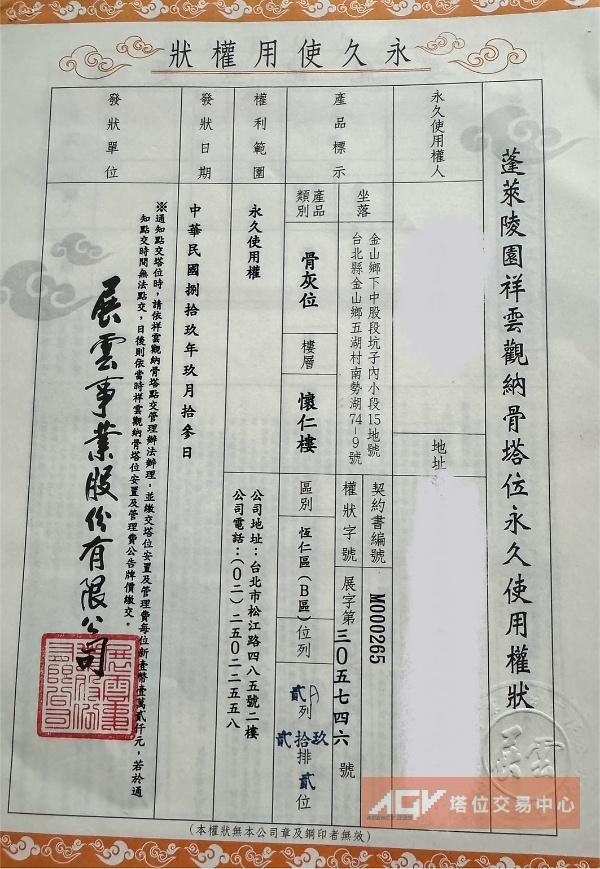 永久使用權狀
蓬萊陵園祥雲觀納骨塔位永久使用權狀
永久使用權人
地址
產品標示
坐落
金山鄉下中股段坑子內小段15地號
台北縣金山鄉五湖村南勢湖74-9號
契約書編號
M000265
產品類別
骨灰位
樓層
懷仁樓
區別
恆仁區(B區)
位列
貳列
貳拾玖排貳位
權狀字號
展字第三0五七四六號
權利範圍
永久使用權
發狀日期
中華民國捌拾玖年玖月拾參日
發狀單位
公司地址：台北市松江路四八五號二樓
公司電話：(0二)二五0二二五五八
※通知點交塔位時，請依祥雲觀納骨塔點交管理辦法辦理，並繳交塔位安置及管理費每位新臺幣壹萬貳仟元，若於通
知點交時間無法點交，日後則依當時祥雲觀納骨塔位安置及管理費公告牌價繳交。
展雲事業股份有限公司
展雲
(本權狀無本公司章及鋼印者無效)
AGV 塔位交易中心